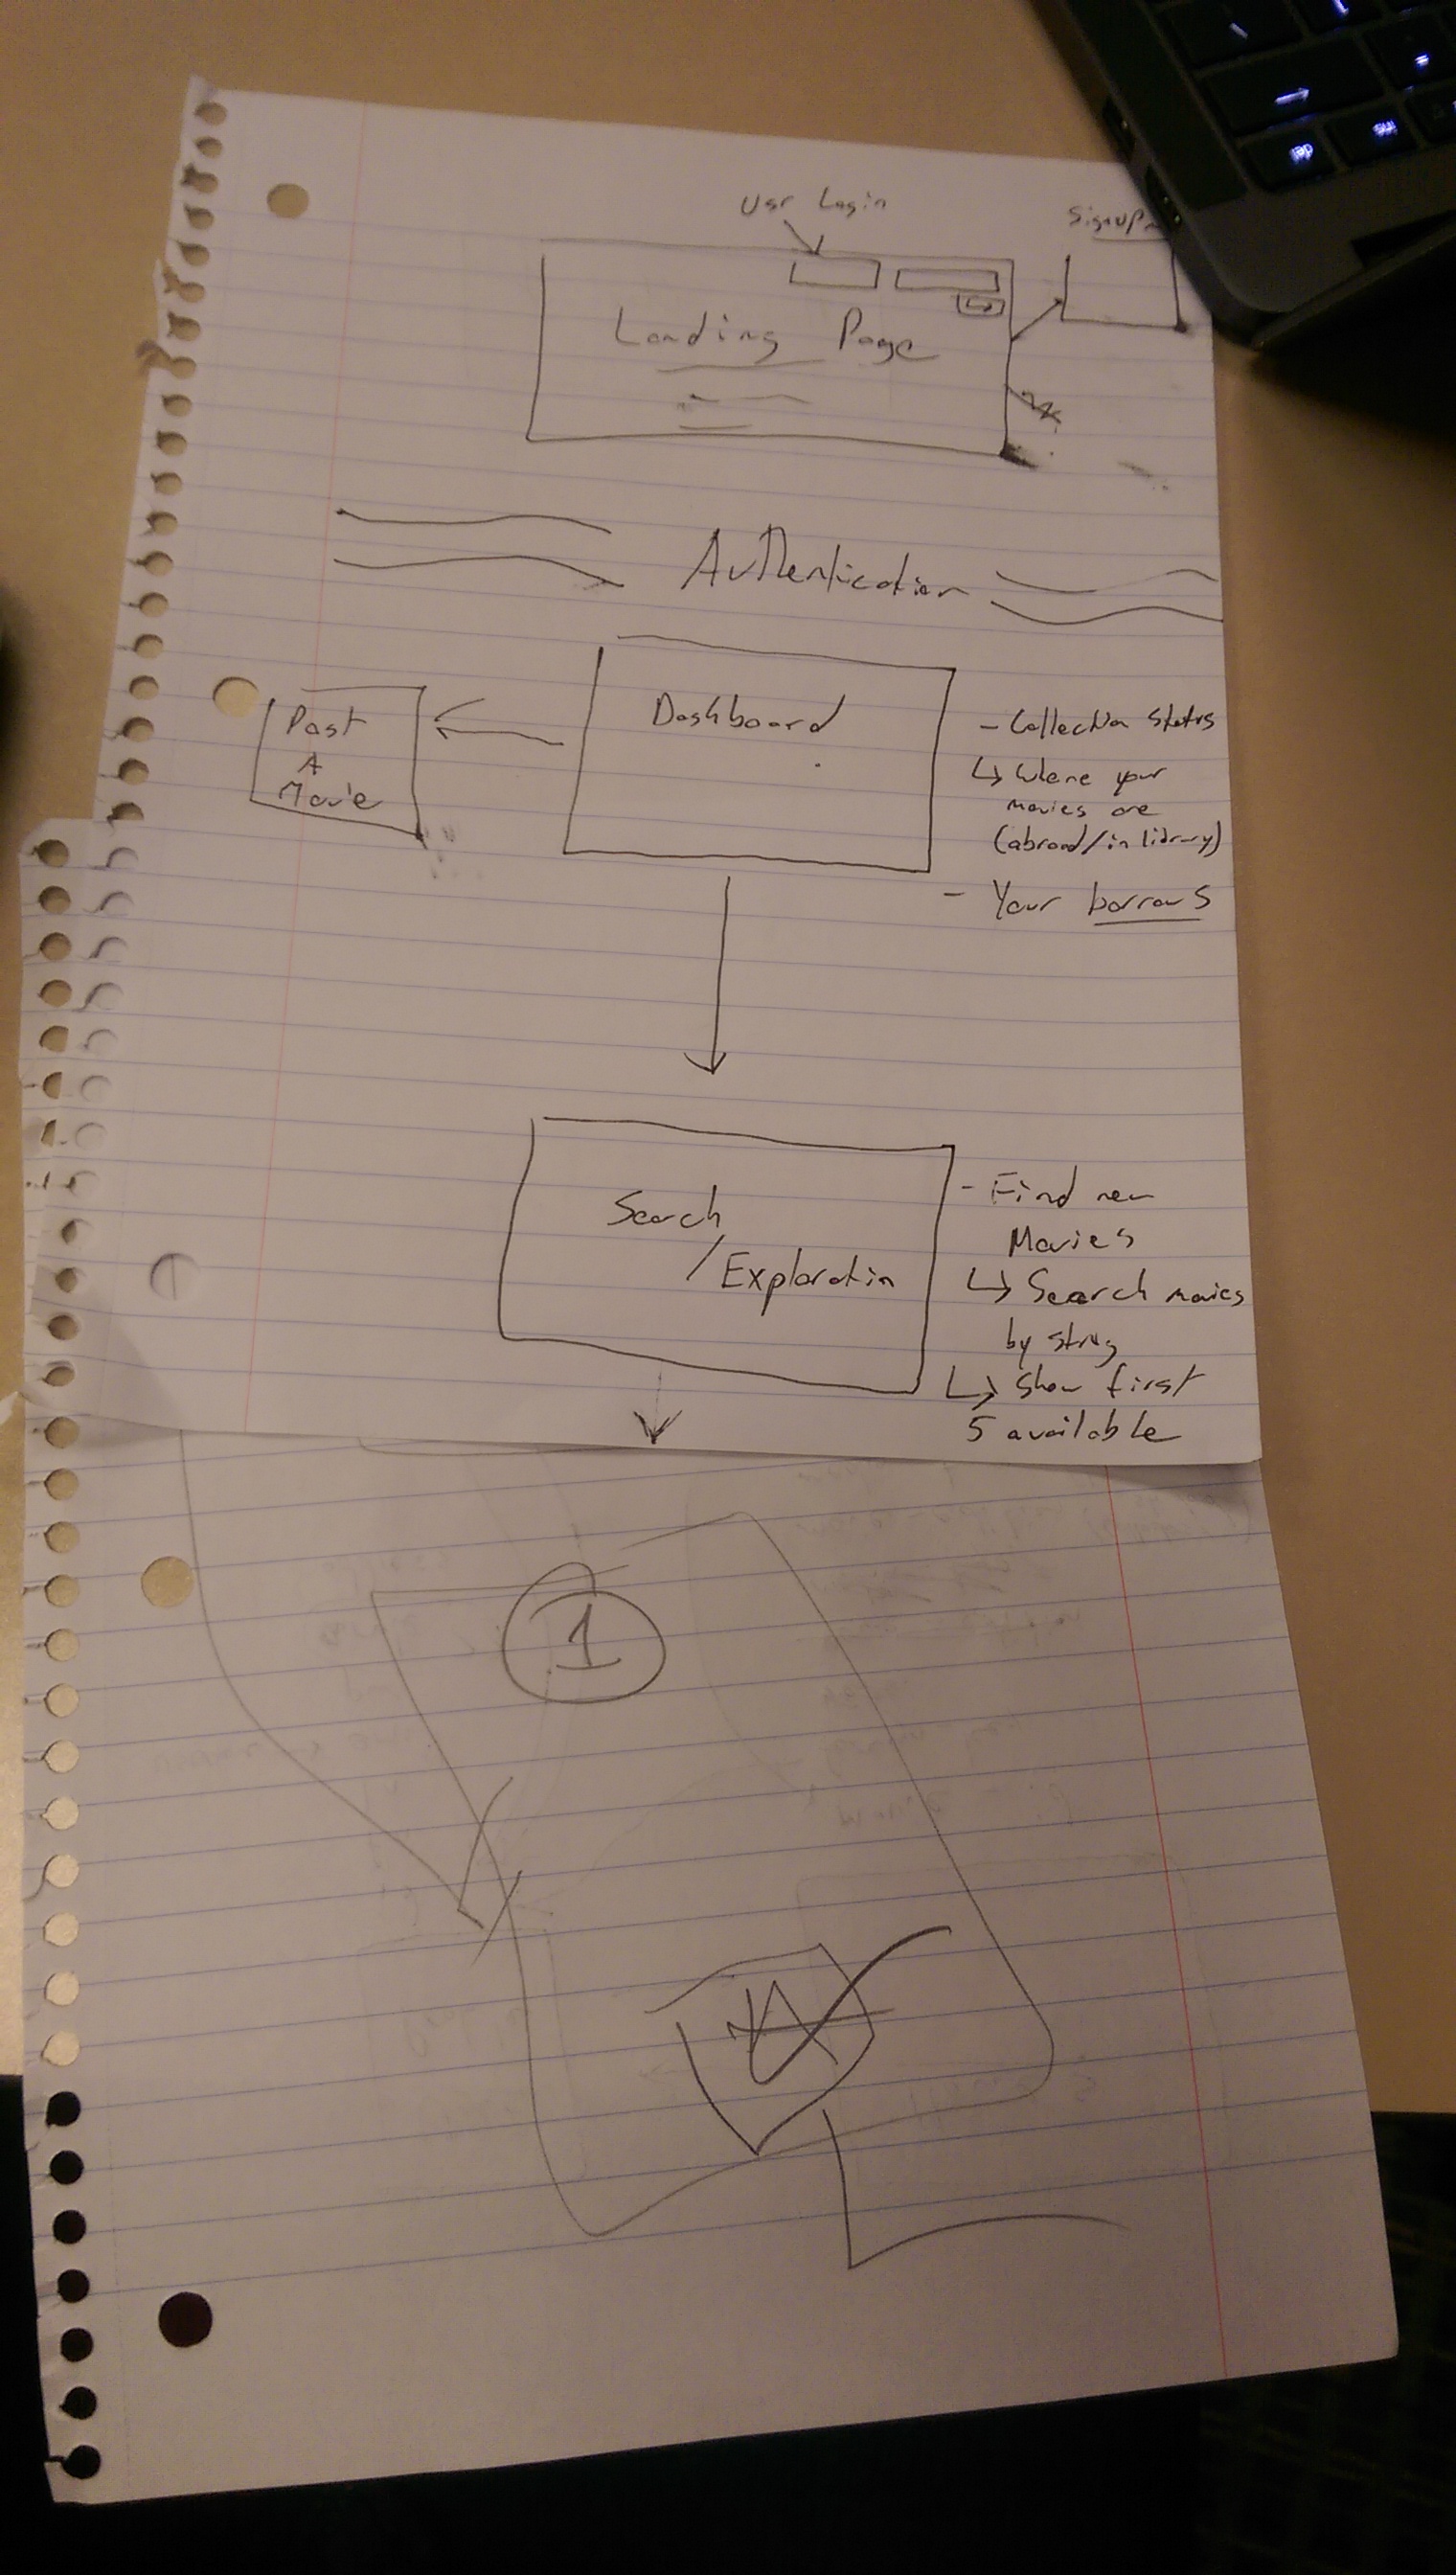 Usr Login
Signup
Landing Page
Authentication
Dashboard
Post
A
Movie
- Collection Status
↳ Where your
movies are
(abroad/in library)
- Your borrows
Search
/Exploratin
- Find new
Movies
↳ Search movies
by string
↳ Show first
5 available
1